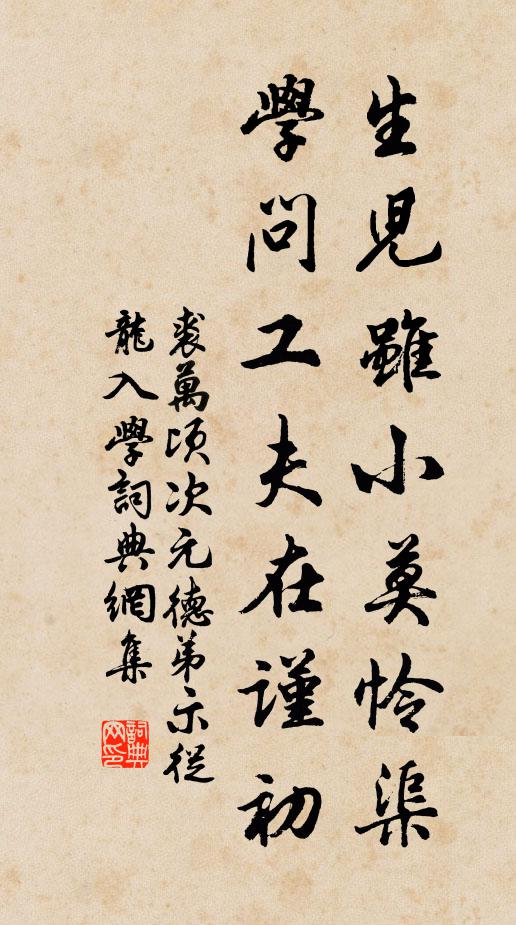 生児雖小莫怜渠
學問工夫在謹初
裘萬頃次元德弟示從
龍入學詞典網集
詞典網印